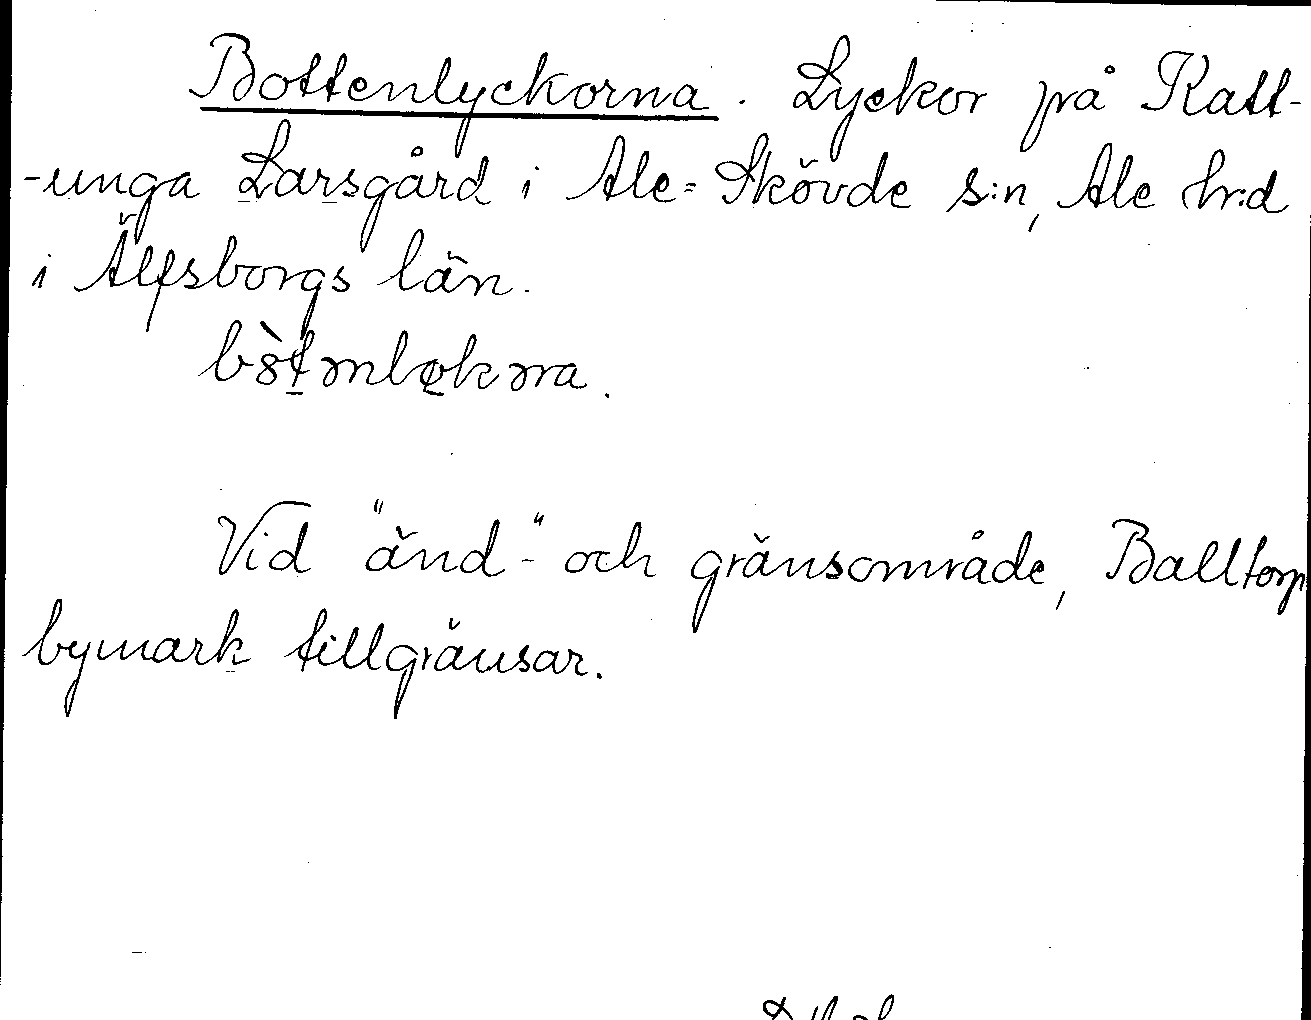 Bottenlyckorna. Lyckor på Katt-
-unga Larsgård i Ale-Skövde s:n, Ale hr:d
i Älfsborgs län.
Vid "änd-" och gränsområde, Balltorp
bymark tillgränsar.